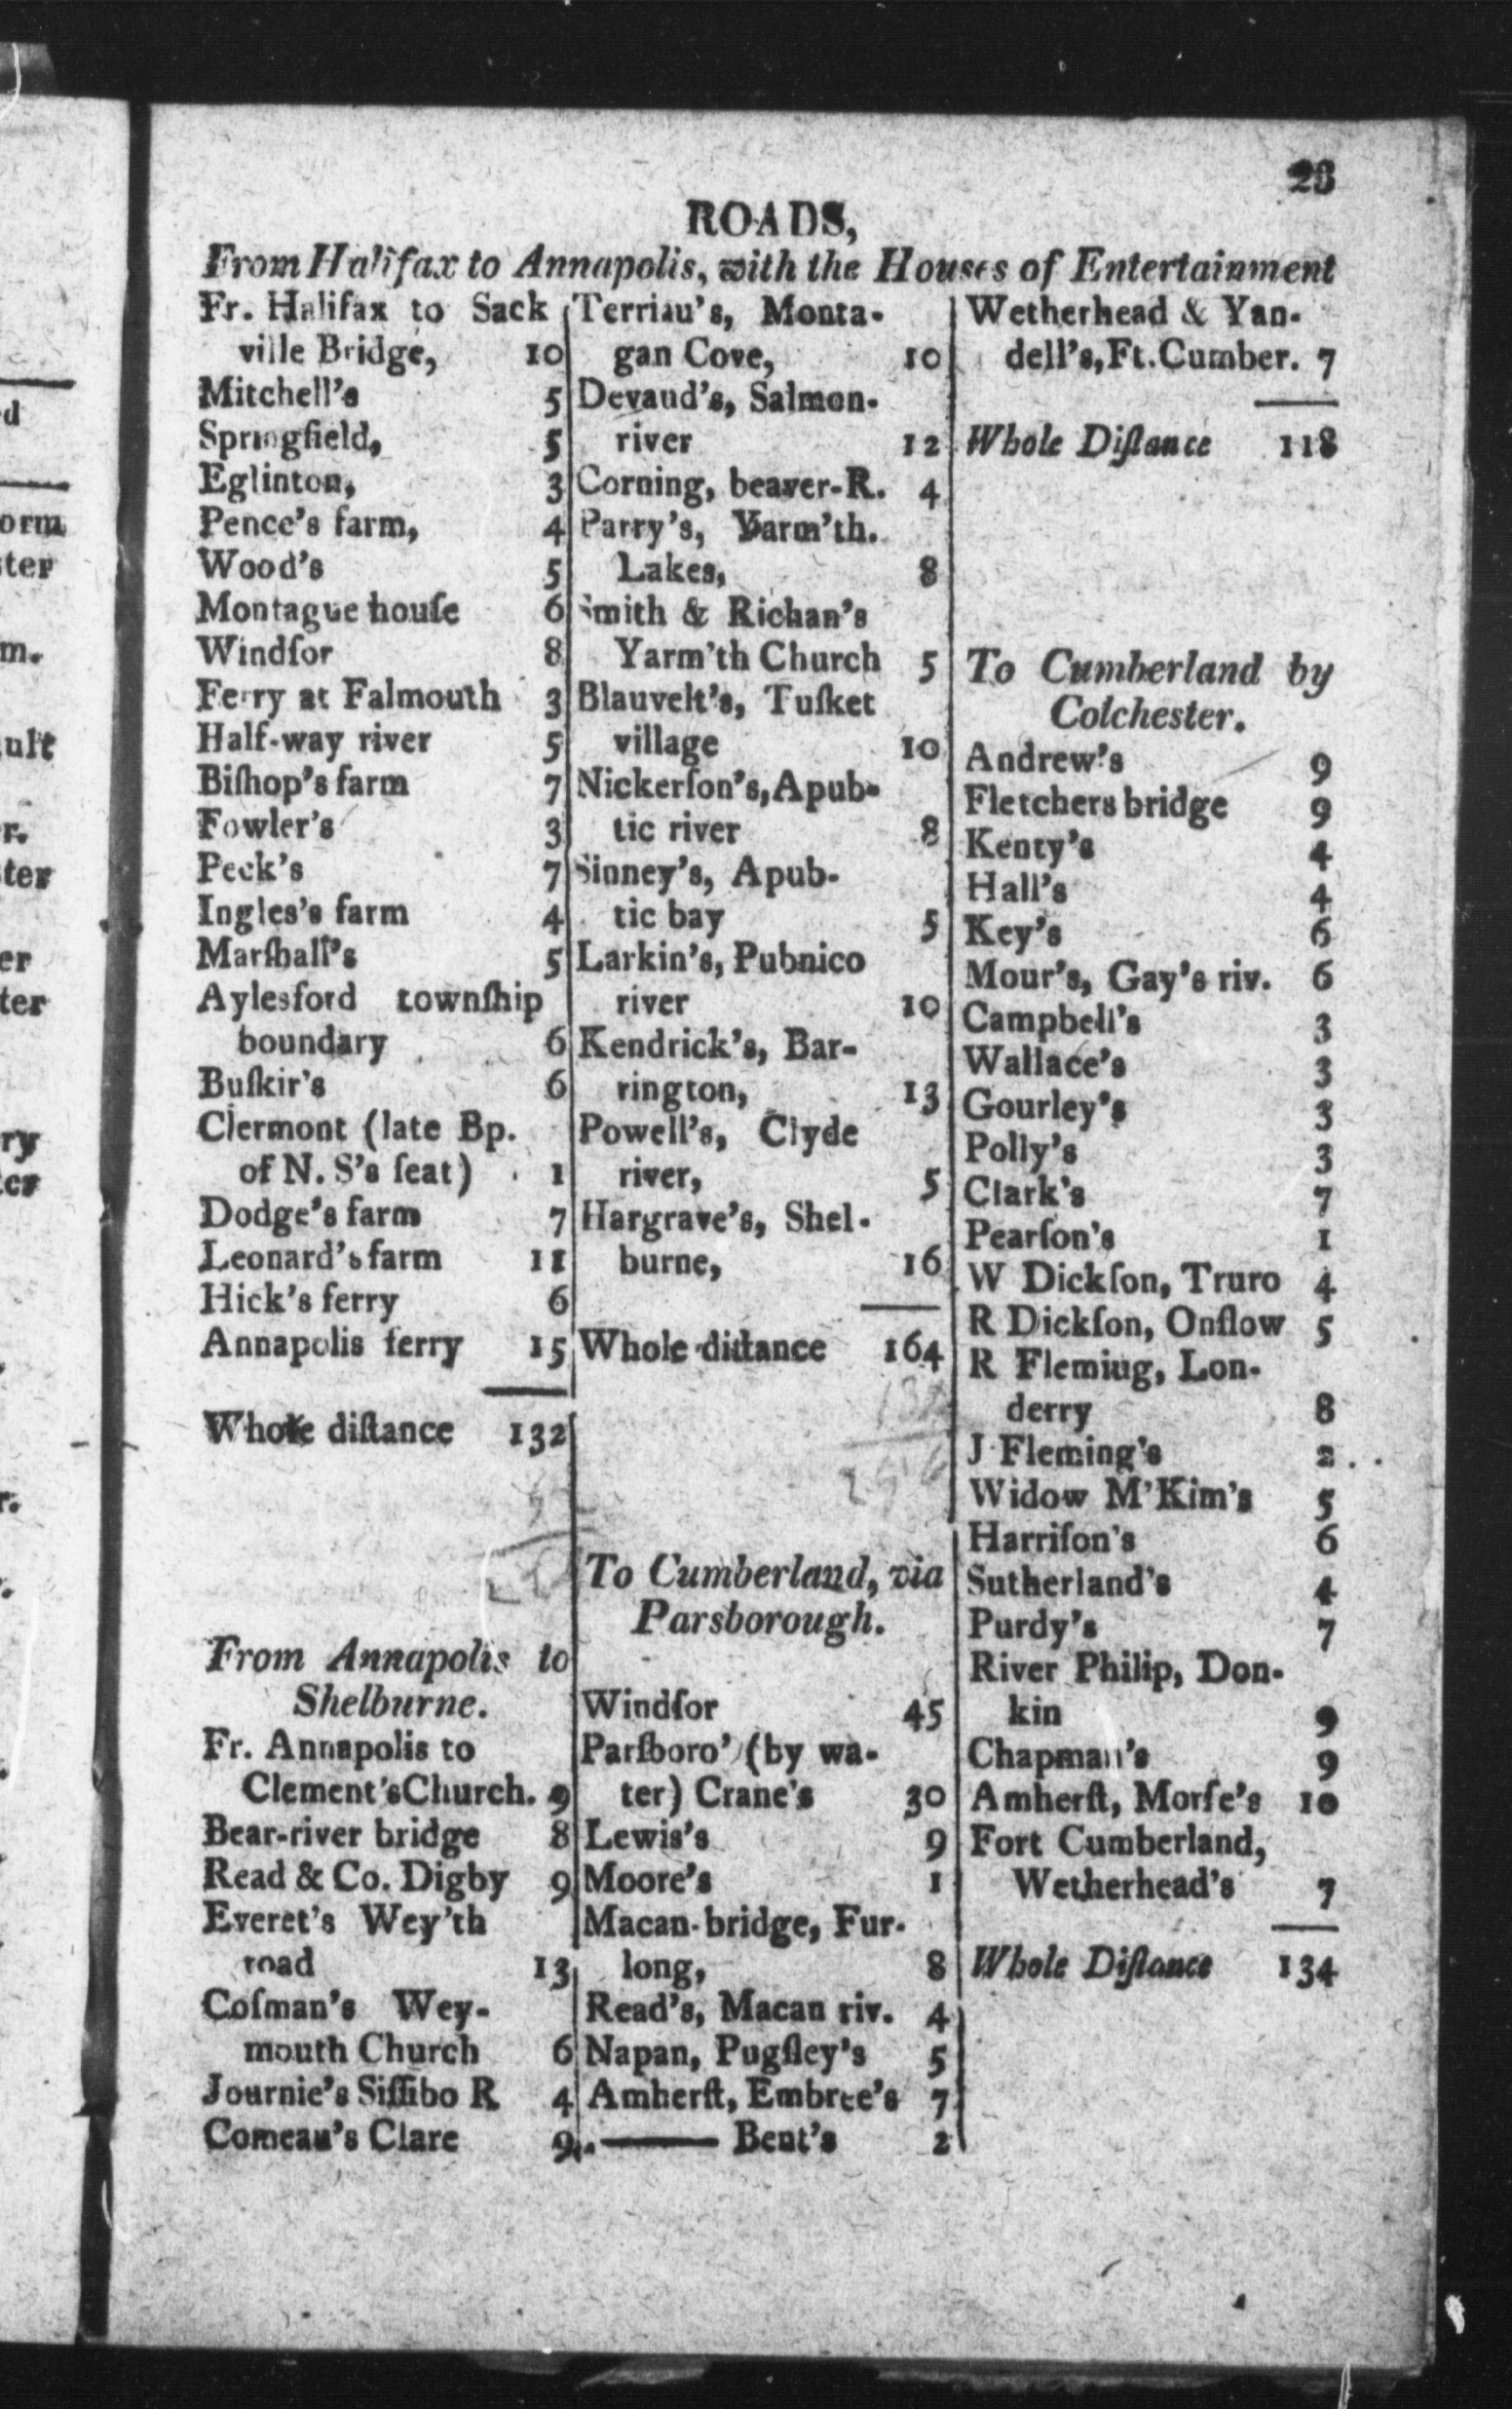 23
ROADS,
From Halifax to Annapolis, with the Houses of Entertainment
Fr. Halifax to Sack
ville Bridge, 10
Mitchell's 5
Springfield, 5
Eglinton, 3
Pence's farm, 4
Wood's 5
Montague houſe 6
Windſor 8
Ferry at Falmouth 3
Half-way river 5
Biſhop's farm 7
Fowler's 3
Peck's 7
Ingles's farm 4
Marſhall's 5
Aylesford townſhip
boundary 6
Buſkir's 6
Clermont (late Bp.
of N. S's ſeat) 1
Dodge's farm 7
Leonard's farm 11
Hick's ferry 6
Annapolis ferry 15
Whole diſtance 132
From Annapolis to
Shelburne.
Fr. Annapolis to
Clement's Church. 9
Bear-river bridge 8
Read & Co. Digby 9
Everet's Wey'th
road 13
Coſman's Wey-
mouth Church 6
Journie's Siſſibo R 4
Comeau's Clare 9
Terriau's, Monta-
gan Cove, 10
Devaud's, Salmon-
river 12
Corning, beaver-R. 4
Parry's, Yarm'th.
Lakes, 8
Smith & Richan's
Yarm'th Church 5
Blauvelt's, Tuſket
village 10
Nickerſon's, Apub-
tic river 8
Sinney's, Apub-
tic bay 5
Larkin's, Pubnico
river 10
Kendrick's, Bar-
rington, 13
Powell's, Clyde
river, 5
Hargrave's, Shel-
burne, 16
Whole diſtance 164
To Cumberland, via
Parsborough.
Windſor 45
Parſboro' (by wa-
ter) Crane's 30
Lewis's 9
Moore's 1
Macan-bridge, Fur-
long, 8
Read's, Macan riv. 4
Napan, Pugſley's 5
Amherſt, Embree's 7
—— Bent's 2
Wetherhead & Yan-
dell's, Ft. Cumber. 7
Whole Diſtance 118
To Cumberland by
Colchester.
Andrew's 9
Fletchers bridge 9
Kenty's 4
Hall's 4
Key's 6
Mour's, Gay's riv. 6
Campbell's 3
Wallace's 3
Gourley's 3
Polly's 3
Clark's 7
Pearſon's 1
W Dickſon, Truro 4
R Dickſon, Onſlow 5
R Flemiug, Lon-
derry 8
J Fleming's 2
Widow M'Kim's 5
Harriſon's 6
Sutherland's 4
Purdy's 7
River Philip, Don-
kin 9
Chapman's 9
Amherſt, Morſe's 10
Fort Cumberland,
Wetherhead's 7
Whole Diſtance 134